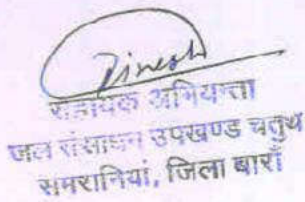 Dinesh
सहायक अभियन्ता
जल संसाधन उपखण्ड चतुर्थ
समरानियां, जिला बाराँ